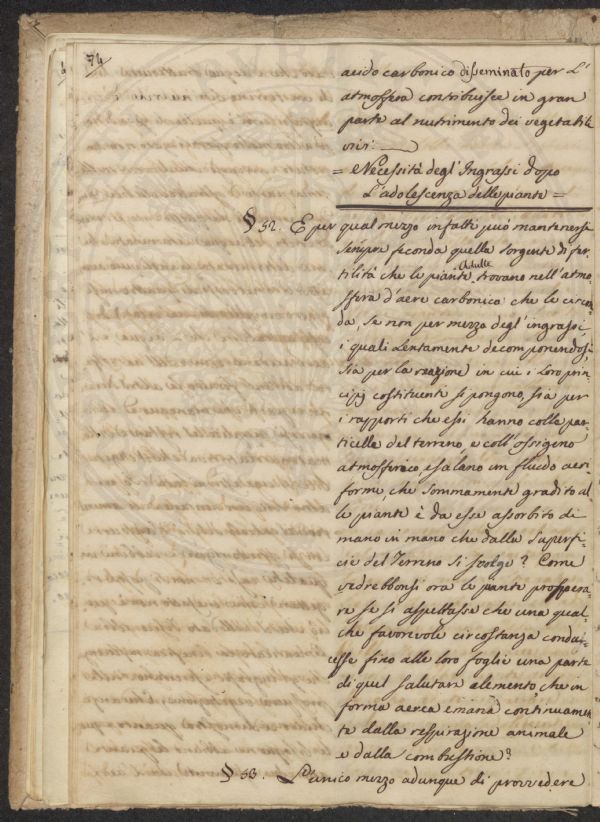 74
acido carbonico disseminato per l'
atmosfera contribuisce in gran
parte al nutrimento dei vegetabili
vivi.
= Necessità degl'Ingrassi dopo
l'adolescenza delle piante =
§ 52. E per qual mezzo infatti può mantenersi
sempre feconda quella sorgente di fer-
tilità che le piante adulte trovano nell'atmo-
sfera d'aere carbonico che le circon-
da, se non per mezzo degl'ingrassi,
i quali lentamente decomponendosi,
sia per la reazione in cui i loro prin-
cipj costituenti si pongono, sia per
i rapporti che essi hanno colle par-
ticelle del terreno, e coll'ossigeno
atmosferico, esalano un fluido aeri
forme, che sommamente gradito al-
le piante è da esse assorbito di
mano in mano che dalla superfi-
cie del Terreno si svolge? Come
vedrebbonsi ora le piante prospera-
re se si aspettasse che una qual-
che favorevole circostanza condu-
cesse fino alle loro foglie una parte
di quel salutare elemento, che in
forma aerea emana continuamen-
te dalla respirazione animale
e dalla combustione?
§ 53. L'unico mezzo adunque di provvedere